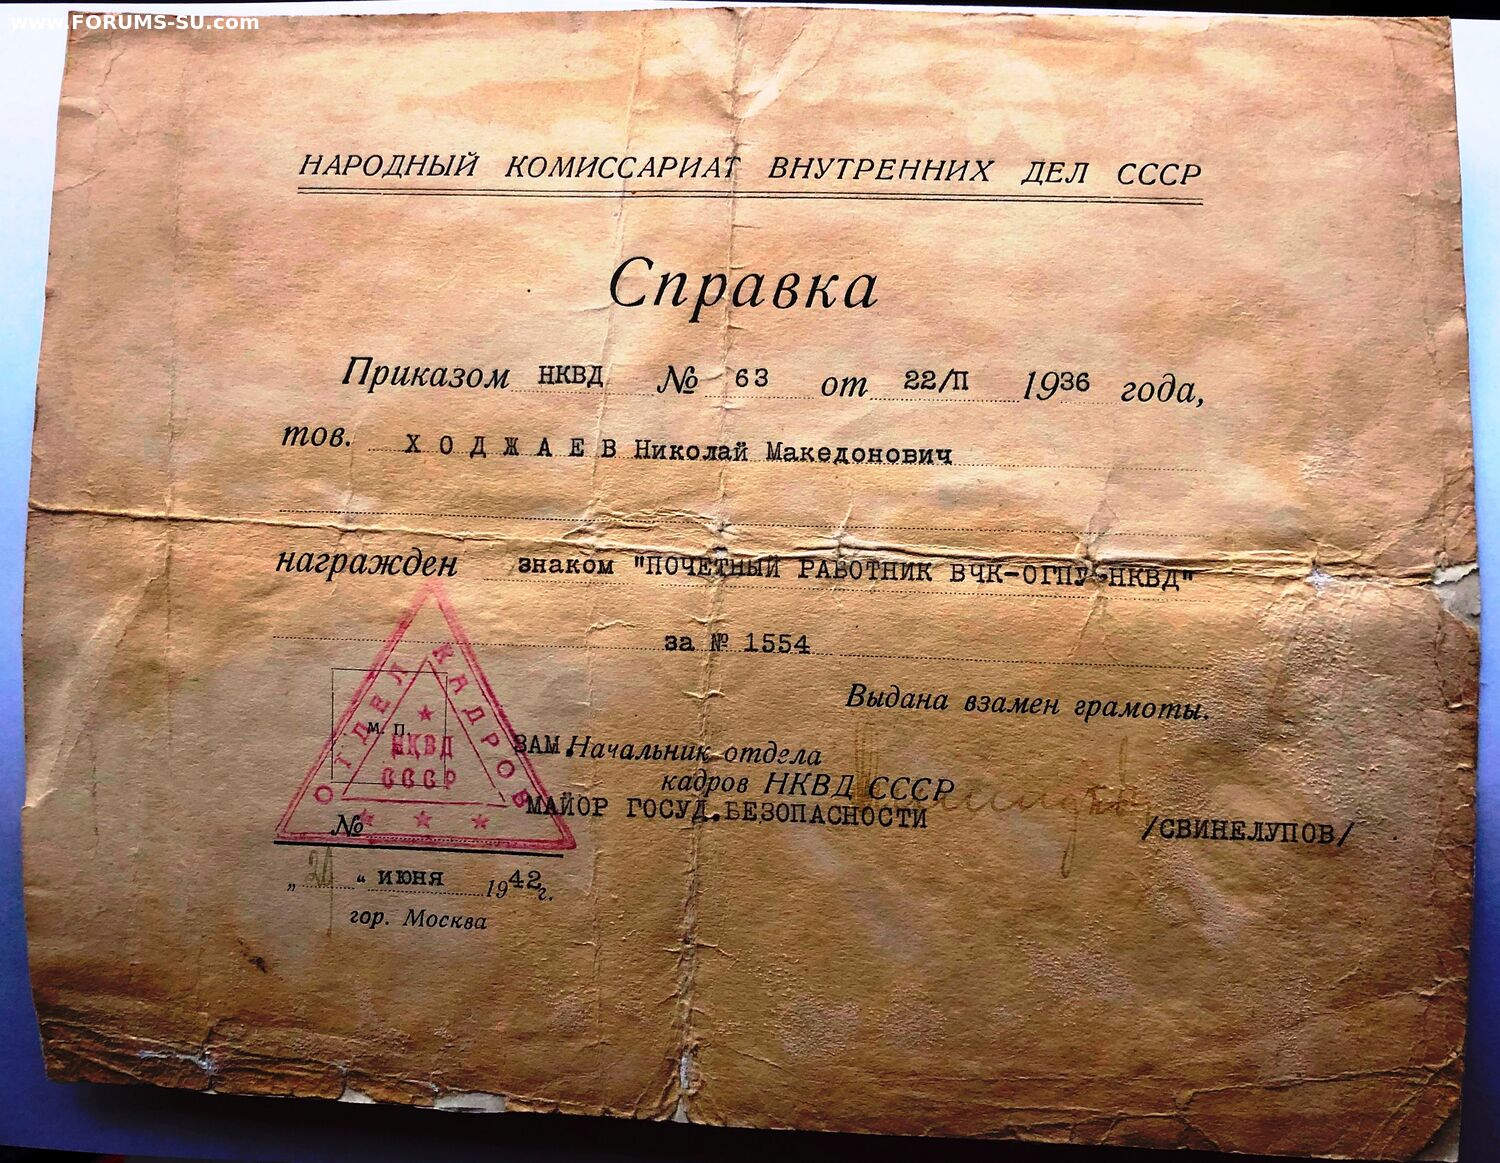 www.FORUMS-SU.com
НАРОДНЫЙ КОМИССАРИАТ ВНУТРЕННИХ ДЕЛ СССР
Справка
Приказом НКВД № 63 от 22/П 1936 года,
тов. Х О Д Ж А Е В Николай Македонович
награжден знаком "ПОЧЕТНЫЙ РАБОТНИК ВЧК-ОГПУ-НКВД"
за № 1554
Выдана взамен грамоты.
ОТДЕЛ КАДРОВ
НКВД
СССР
М. П.
ЗАМ.Начальник отдела
кадров НКВД СССР
МАЙОР ГОСУД.БЕЗОПАСНОСТИ /СВИНЕЛУПОВ/
№
„ “ июня 1942г.
гор. Москва